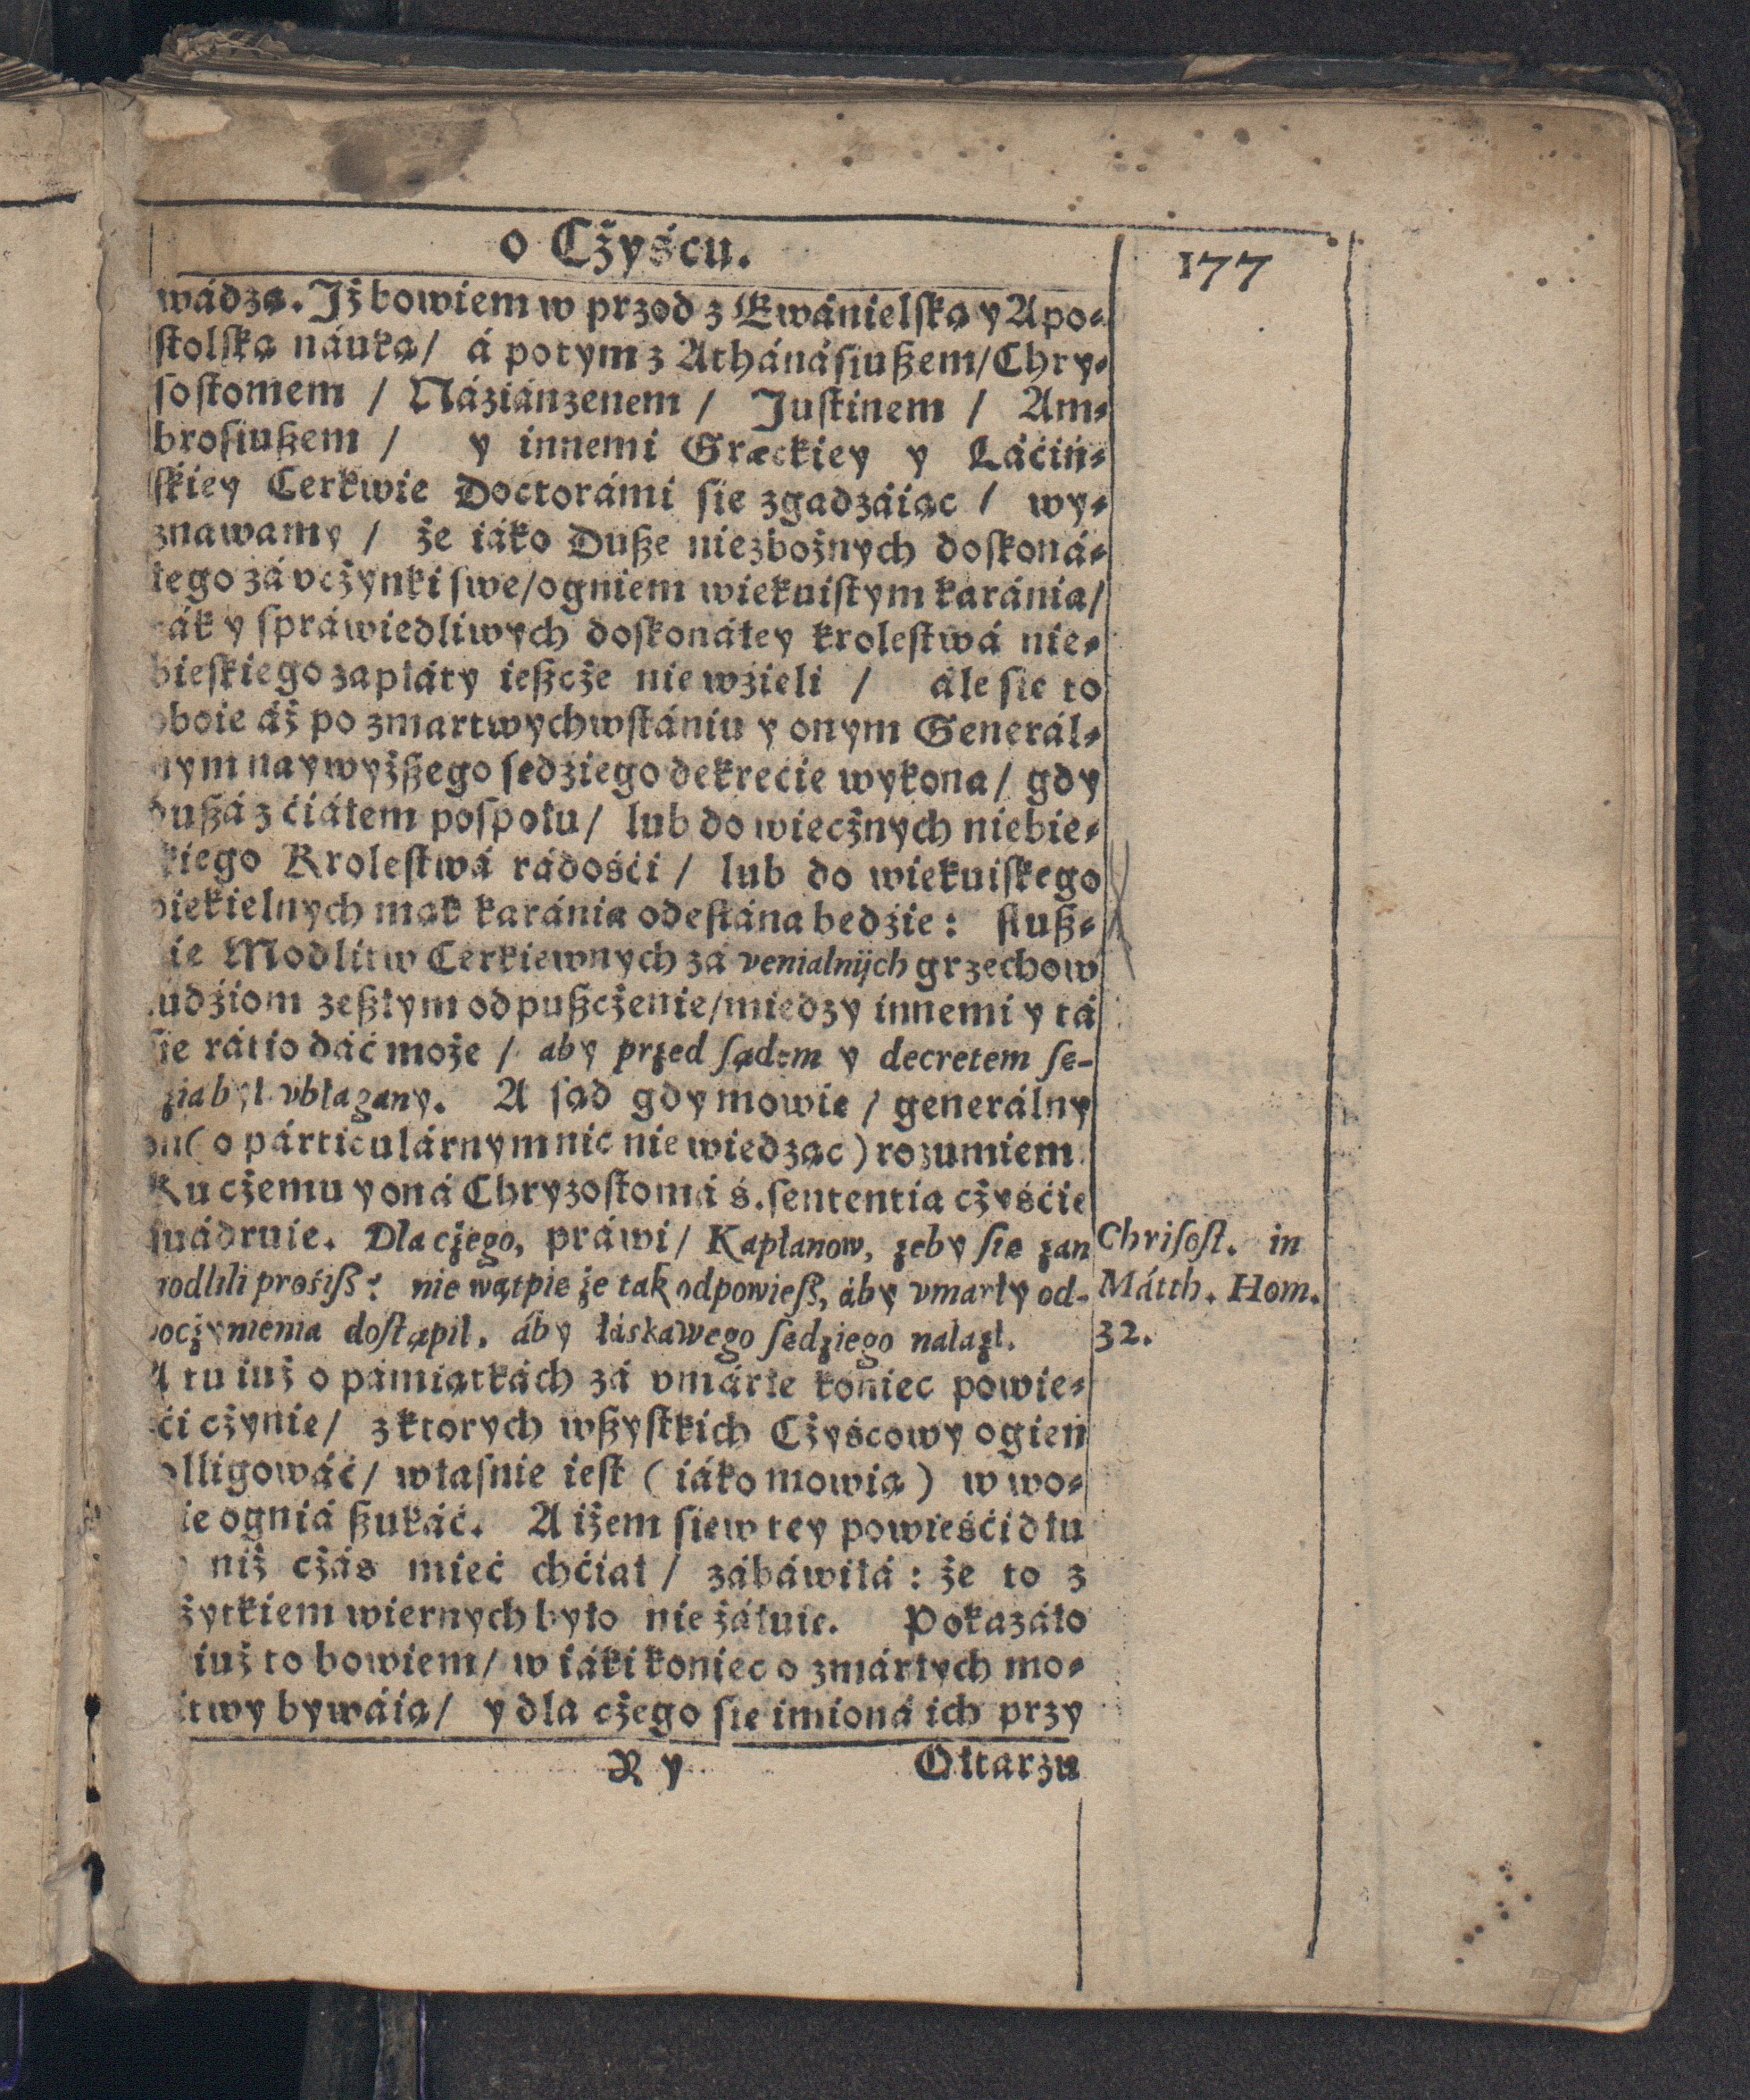 o Cżyścu.
177
wádzą. Jż bowiem w przod z Ewánielską y Apo-
stolską náuką/ á potym z Athánásiuszem/ Chry-
sostomem / Náziánzenem / Justinem / Am-
brosiuszem / y innemi Græckiey y Láćiń-
skiey Cerkwie Doctorámi się zgadzáiąc / wy-
znawamy / że iáko Dusze niezbożnych doskoná-
łego zá vcżynki swe/ ogniem wiekuistym karánia/
ták y spráwiedliwych doskonáłey krolestwá nie-
bieskiego zapłáty ieszcże nie wźięli / ále się to
oboie áż po zmartwychwstániu y onym Generál-
nym naywyższego sędźiego dekrećie wykona/ gdy
duszá z ćiáłem pospołu/ lub do wiecżnych niebie-
kiego Krolestwá rádośći / lub do wiekuiskego
piekielnych mąk karánia odesłána będźie: słusz-
ie Modlitw Cerkiewnych zá venialnijch grzechow
udźiom zeszłym odpuszcżenie/ miedzy innemi y tá
się rátio dáć może / aby przed sądem y decretem sę-
zia był vbłagany. A sąd gdy mowię / generálny
on ( o párticulárnym nic nie wiedząc ) rozumiem.
Ku cżemu y oná Chryzostomá ś. sententia cżyśćie
suádruie. Dla cżego, práwi/ Kapłanow, żeby się zan
modlili prośisz? nie wątpię że tak odpowiesz, áby vmarły od-
pocżynienia dostąpił, áby łáskáwego sędziego nalazł.
Chrisost. in
Mátth. Hom.
32.
A tu iuż o pámiątkách zá vmárłe koniec powie-
śći cżynię/ z ktorych wszystkich Cżyścowy ogień
olligowáć/ własnie iest ( iáko mowią ) w wo-
ie ogniá szukáć. A iżem się w tey powieśći dłu
niż cżás mieć chćiał / zábáwiłá: że to z
żytkiem wiernych było nie żáłuię. Pokazáło
iuż to bowiem/ w iáki koniec o zmárłych mo-
itwy bywáią/ y dla cżego się imioná ich przy
R y
Ołtarzu